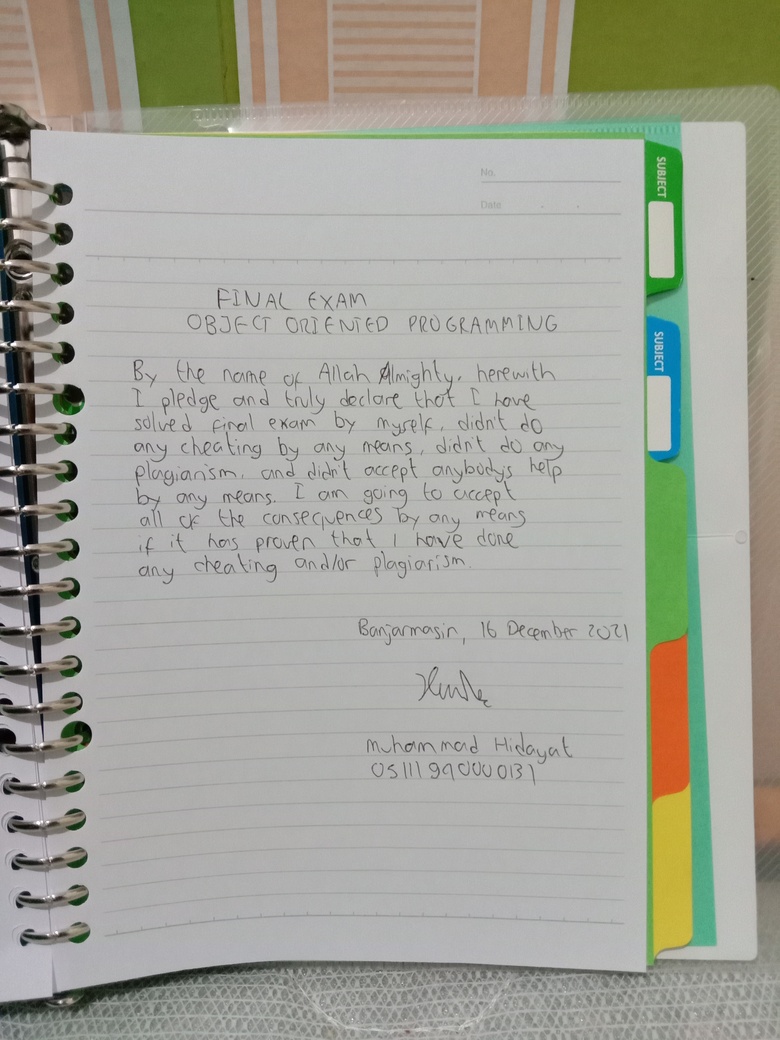 No.
Date
SUBJECT
SUBJECT
FINAL EXAM
OBJECT ORIENTED PROGRAMMING
By the name of Allah Almighty, herewith
I pledge and truly declare that I have
solved final exam by myself, didn't do
any cheating by any means, didn't do any
plagiarism, and didn't accept anybody's help
by any means. I am going to accept
all of the consequences by any means
if it has proven that I have done
any cheating and/or plagiarism.
Banjarmasin, 16 December 2021
Muhammad Hidayat